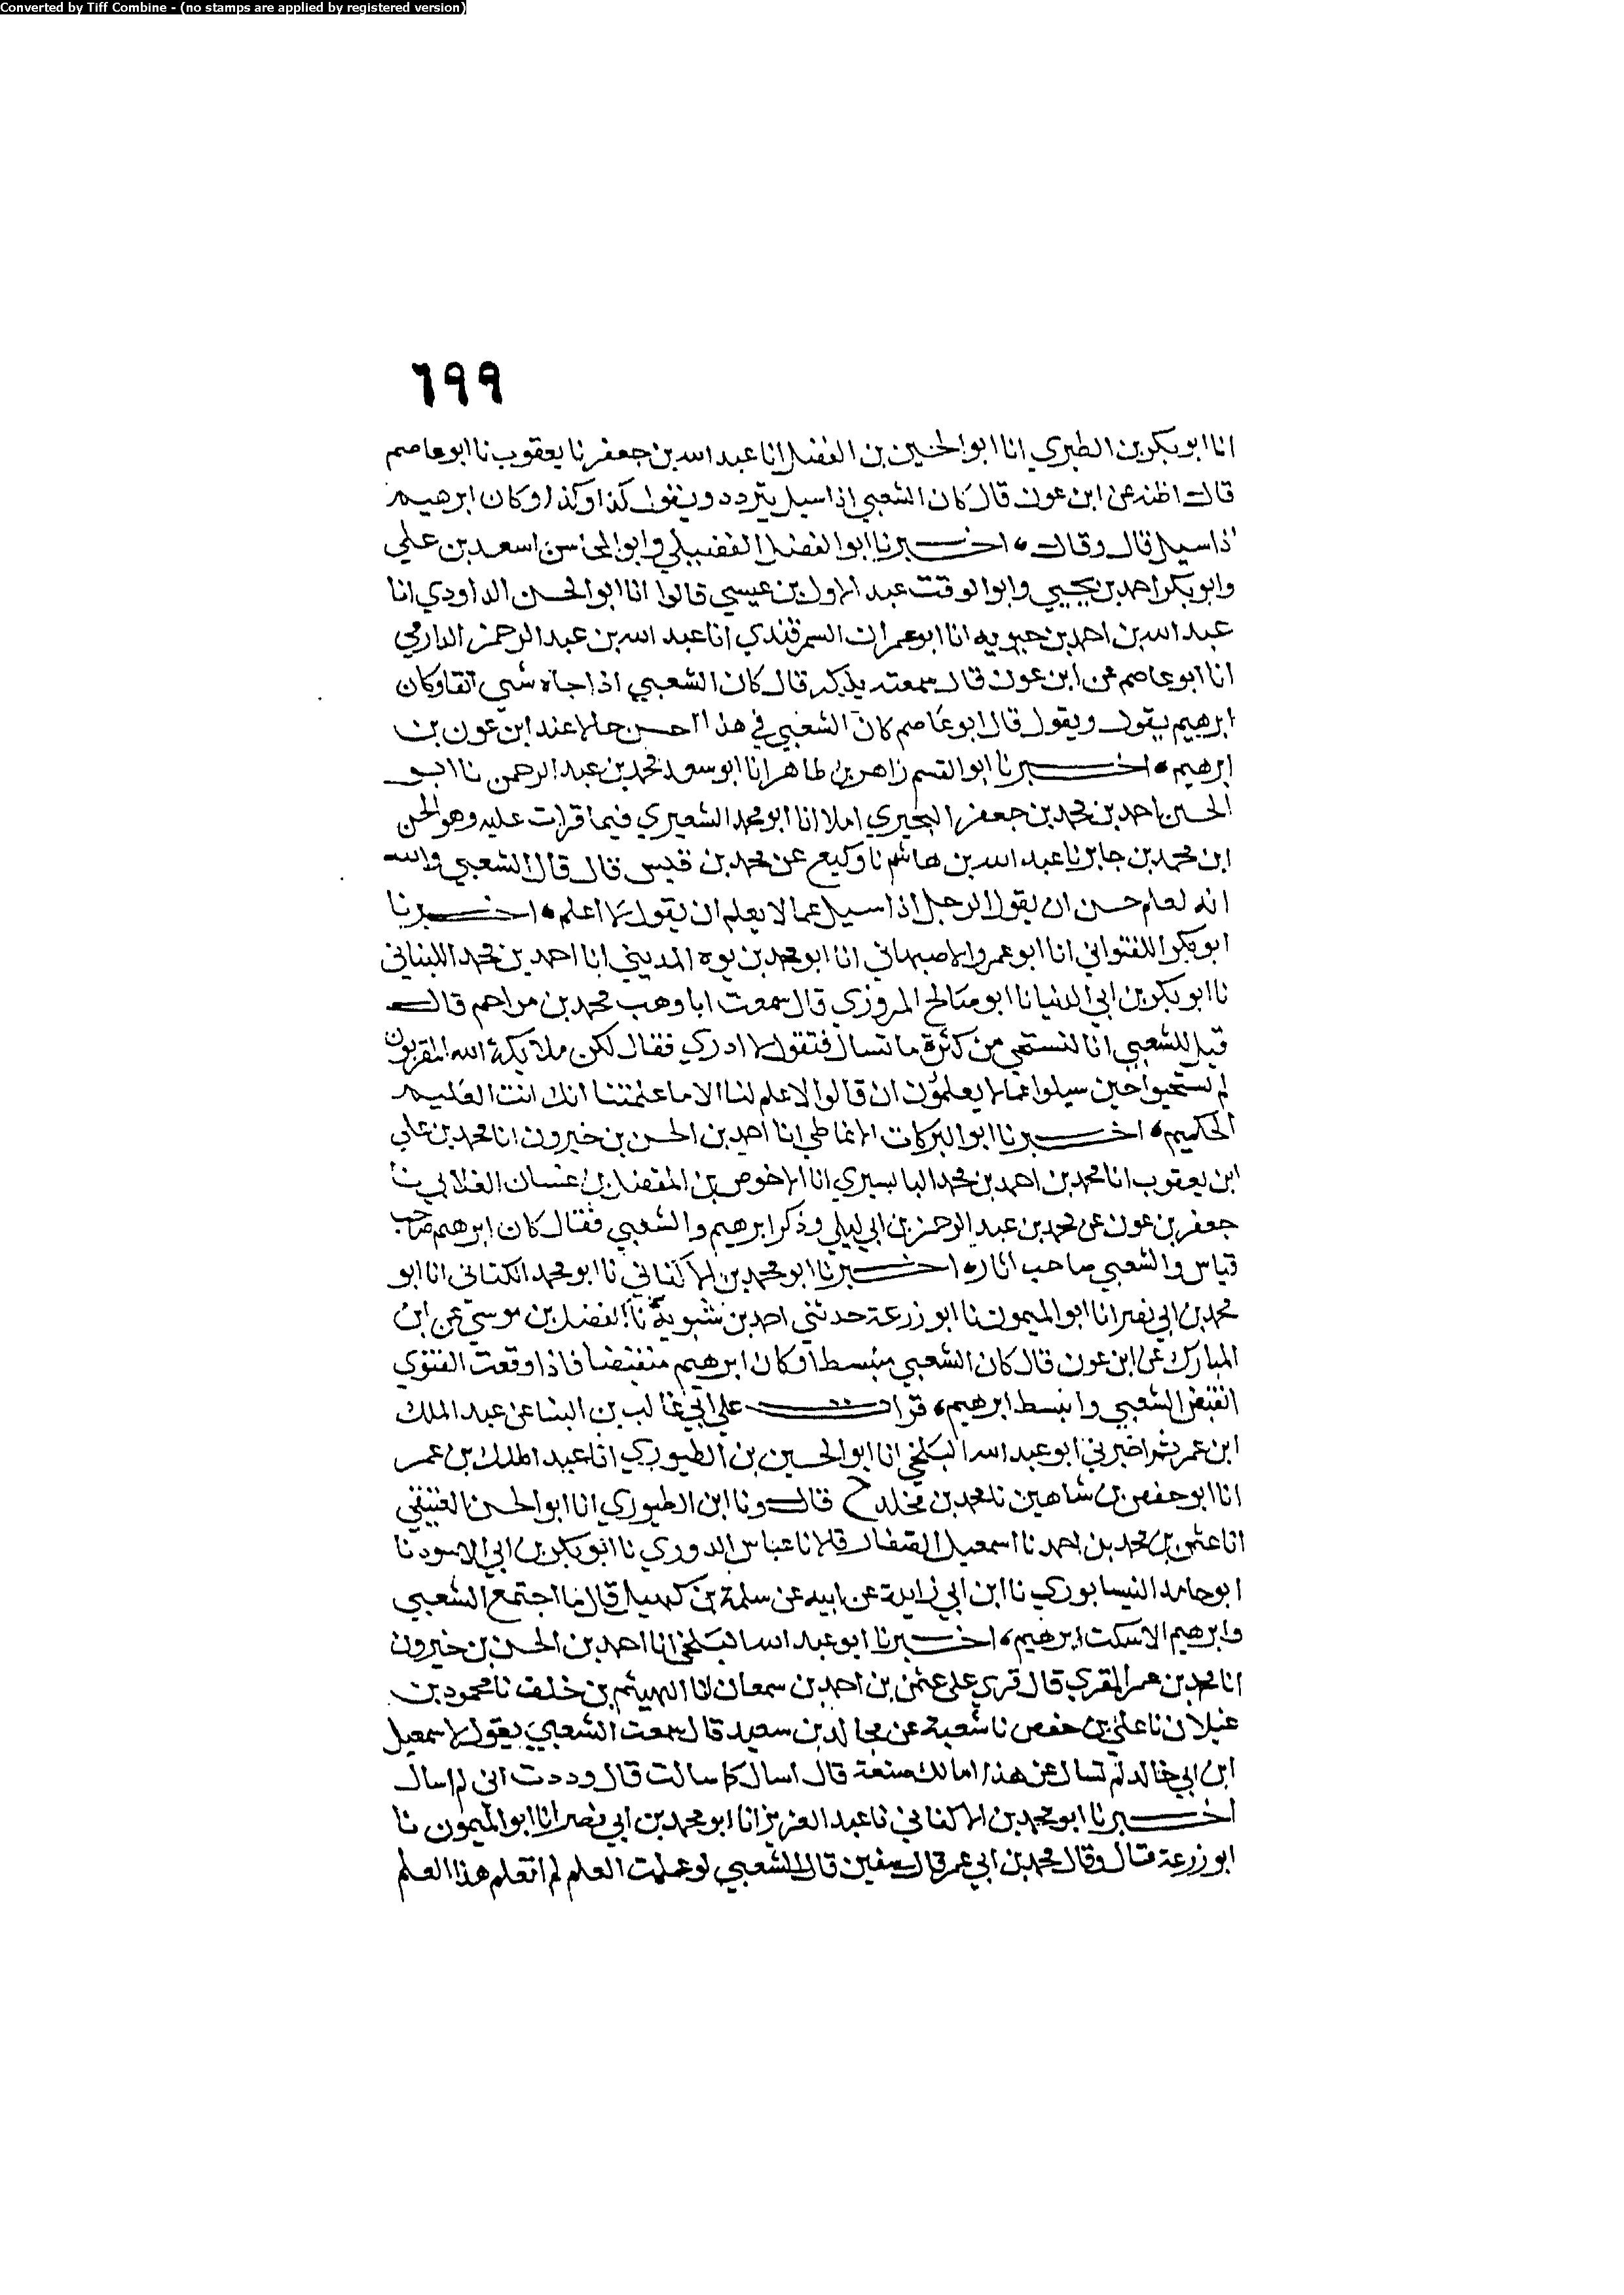 Converted by Tiff Combine - (no stamps are applied by registered version)
٦٩٩
انا ابو بكر بن الطبري انا ابو الحسين بن الفضل انا عبد الله بن جعفر نا يعقوب نا ابو عاصم
قال اظنه عن ابن عون قال كان الشعبي اذا سيل يتردد ويقول كذا وكذا وكان ابرهيم
اذا سيل قال وقال ، اخبرنا ابو الفضل الفضيلي وابو المحاسن اسعد بن علي
وابو بكر احمد بن يحيى وابو الوقت عبد الاول بن عيسى قالوا انا ابو الحسن الداودي انا
عبد الله بن احمد بن حمويه انا ابو عمران السمرقندي انا عبد الله بن عبد الرحمن الدارمي
انا ابو عاصم عن ابن عون قال سمعته يذكر قال كان الشعبي اذا جاه شي اتقا وكان
ابرهيم يقول ويقول قال ابو عاصم كان الشعبي في هذا احسن حالا عند ابن عون بن
ابرهيم ، اخبرنا ابو القسم زاهر بن طاهر انا ابو سعد محمد بن عبد الرحمن نا ابو
الحسين احمد بن محمد بن جعفر البحيري املا انا ابو محمد الشعيري فيما قرات عليه وهو الحسن
ابن محمد بن جابر نا عبد الله بن هاشم نا وكيع عن محمد بن قيس قال قال الشعبي والله
انه لعلم حسن ان يقول الرجل اذا سيل عما لا يعلم ان يقول لا اعلم ، اخبرنا
ابو بكر اللفتواني انا ابو عمرو الاصبهاني انا ابو محمد بن يوه المديني انا احمد بن محمد اللبناني
نا ابو بكر بن ابي الدنيا نا ابو صالح المروزي قال سمعت ابا وهب محمد بن مزاحم قال
قيل للشعبي انا لنستحي من كثرة ما تسال فتقول لا ادري فقال لكن ملايكة الله المقربون
لم يستحيوا حين سيلوا عما لا يعلمون ان قالوا لا علم لنا الا ما علمتنا انك انت العليم
الحكيم ، اخبرنا ابو البركات الانماطي انا احمد بن الحسن بن خيرون انا محمد بن علي
ابن يعقوب انا محمد بن احمد بن محمد البابسيري انا الاحوص بن المفضل بن غسان الغلابي نا
جعفر بن عون عن محمد بن عبد الرحمن بن ابي ليلى وذكر ابرهيم والشعبي فقال كان ابرهيم صاحب
قياس والشعبي صاحب اثار ، اخبرنا ابو محمد بن الاكفاني نا ابو محمد الكتاني انا ابو
محمد بن ابي نصر انا ابو الميمون نا ابو زرعة حدثني احمد بن شبويه نا الفضل بن موسى عن ابن
المبارك عن ابن عون قال كان الشعبي منبسطا وكان ابرهيم منقبضا فاذا وقعت الفتوى
انقبض الشعبي وانبسط ابرهيم ، قرات على ابي غالب بن البنا عن عبد الملك
ابن عمر ثم اخبرني ابو عبد الله البلخي انا ابو الحسين بن الطيوري انا عبد الملك بن عمر
انا ابو حفص بن شاهين نا محمد بن مخلد ح قال ونا ابن الطيوري انا ابو الحسن العتيقي
انا عثمن بن محمد بن احمد نا اسمعيل الصفار قالا نا عباس الدوري نا ابو بكر بن ابي الاسود نا
ابو حامد النيسابوري نا ابن ابي زايدة عن ابيه عن سلمة بن كهيل قال ما اجتمع الشعبي
وابرهيم الا سكت ابرهيم ، اخبرنا ابو عبد الله البلخي انا احمد بن الحسن بن خيرون
انا محمد بن عمر المقري قال قري على عثمن بن احمد بن سمعان انا الهيثم بن خلف نا محمود بن
غيلان نا علي بن حفص نا شعبة عن مجالد بن سعيد قال سمعت الشعبي يقول لاسمعيل
ابن ابي خالد لم تسال عن هذا اما لك صنعة قال اسال كما سالت قال وددت اني لم اسال
اخبرنا ابو محمد بن الاكفاني نا عبد العزيز انا ابو محمد بن ابي نصر انا ابو الميمون نا
ابو زرعة قال وقال محمد بن ابي عمر قال سفين قال الشعبي لو علمت العلم لم اتعلم هذا العلم